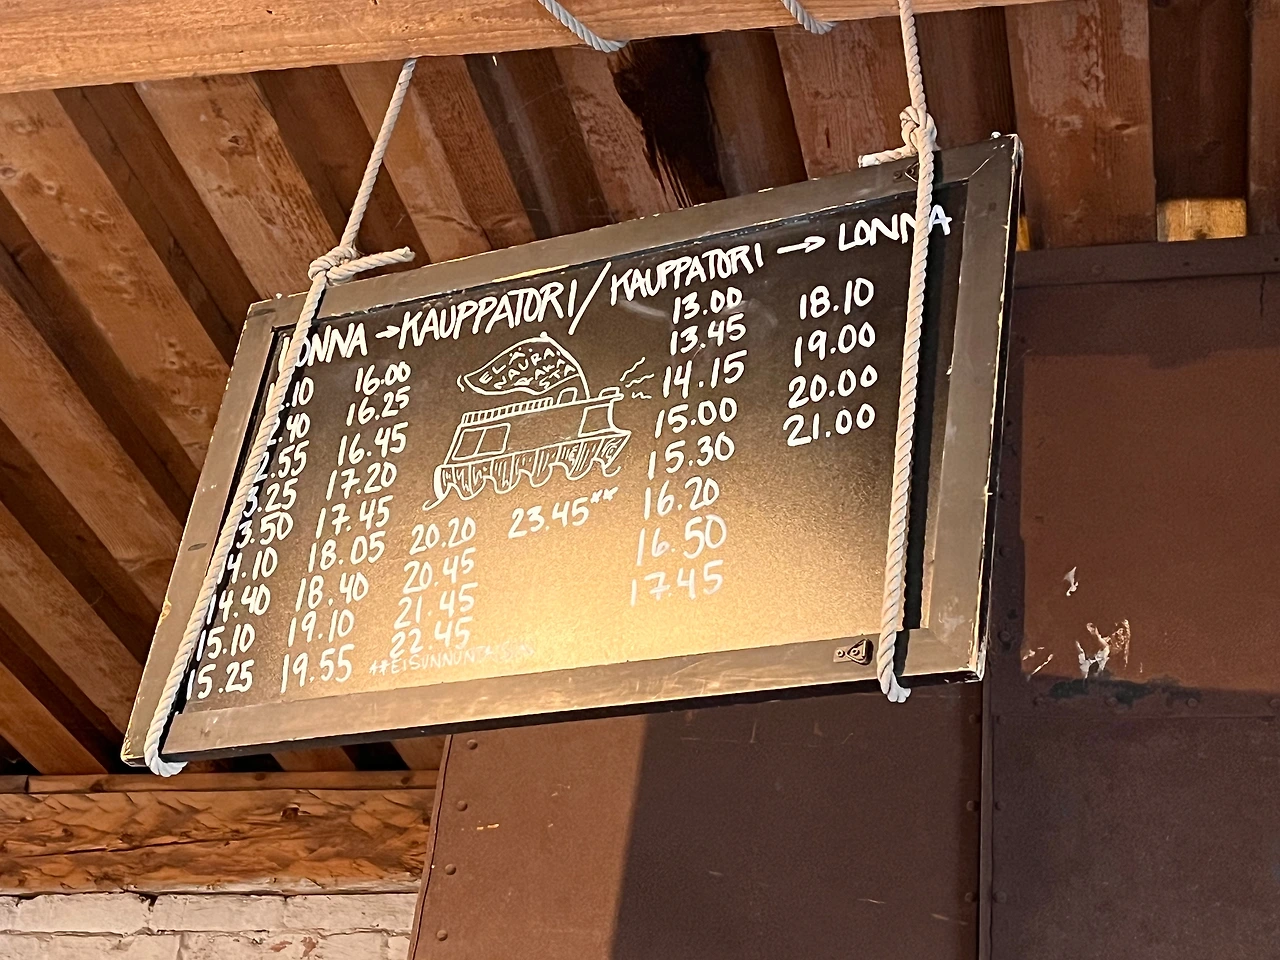 LONNA → KAUPPATORI / KAUPPATORI → LONNA
.10 16.00
.40 16.25
2.55 16.45
3.25 17.20
3.50 17.45
14.10 18.05 20.20 23.45**
14.40 18.40 20.45
15.10 19.10 21.45
15.25 19.55 22.45
**EI SUNNUNTAISIN
ELÄ
NAURA
RAKA
STA
13.00 18.10
13.45 19.00
14.15 20.00
15.00 21.00
15.30
16.20
16.50
17.45